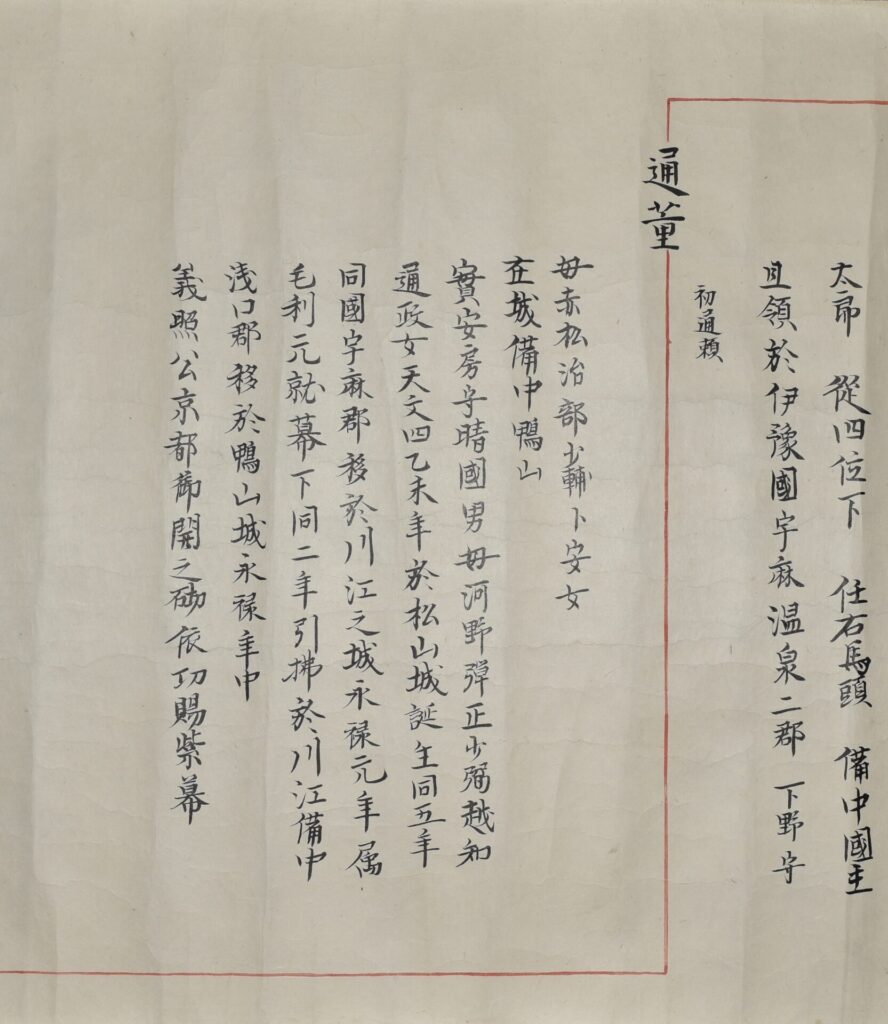 太郎　従四位下　任右馬頭　備中國主
且領於伊豫國宇麻温泉二郡　下野守
初通頼
通董
母赤松治部少輔卜安女
在城備中鴨山
實安房守晴國男母河野弾正少弼越知
通政女天文四乙未年於松山城誕生同五年
同國宇麻郡移於川江之城永禄元年属
毛利元就幕下同二年引拂於川江備中
浅口郡移於鴨山城永禄年中
義照公京都御開之砌依功賜紫幕